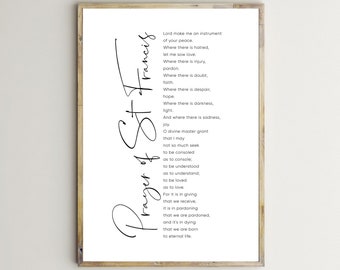 Prayer of St Francis
Lord make me an instrument
of your peace.
Where there is hatred,
let me sow love;
Where there is injury,
pardon;
Where there is doubt,
faith;
Where there is despair,
hope;
Where there is darkness,
light;
And where there is sadness,
joy.
O divine master grant
that I may
not so much seek
to be consoled
as to console;
to be understood
as to understand;
to be loved
as to love.
For it is in giving
that we receive,
it is in pardoning
that we are pardoned,
and it's in dying
that we are born
to eternal life.